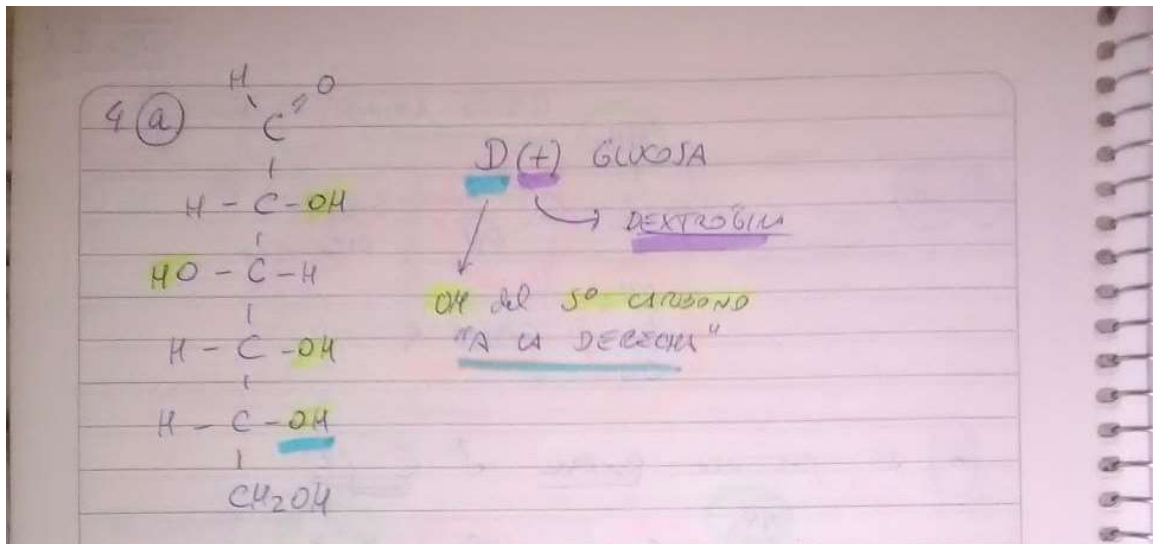 4 a
H O
C
H - C - OH
HO - C - H
H - C - OH
H - C - OH
CH2OH
D (+) GLUCOSA
DEXTRÓGIRA
OH del 5º CARBONO
"A LA DERECHA"